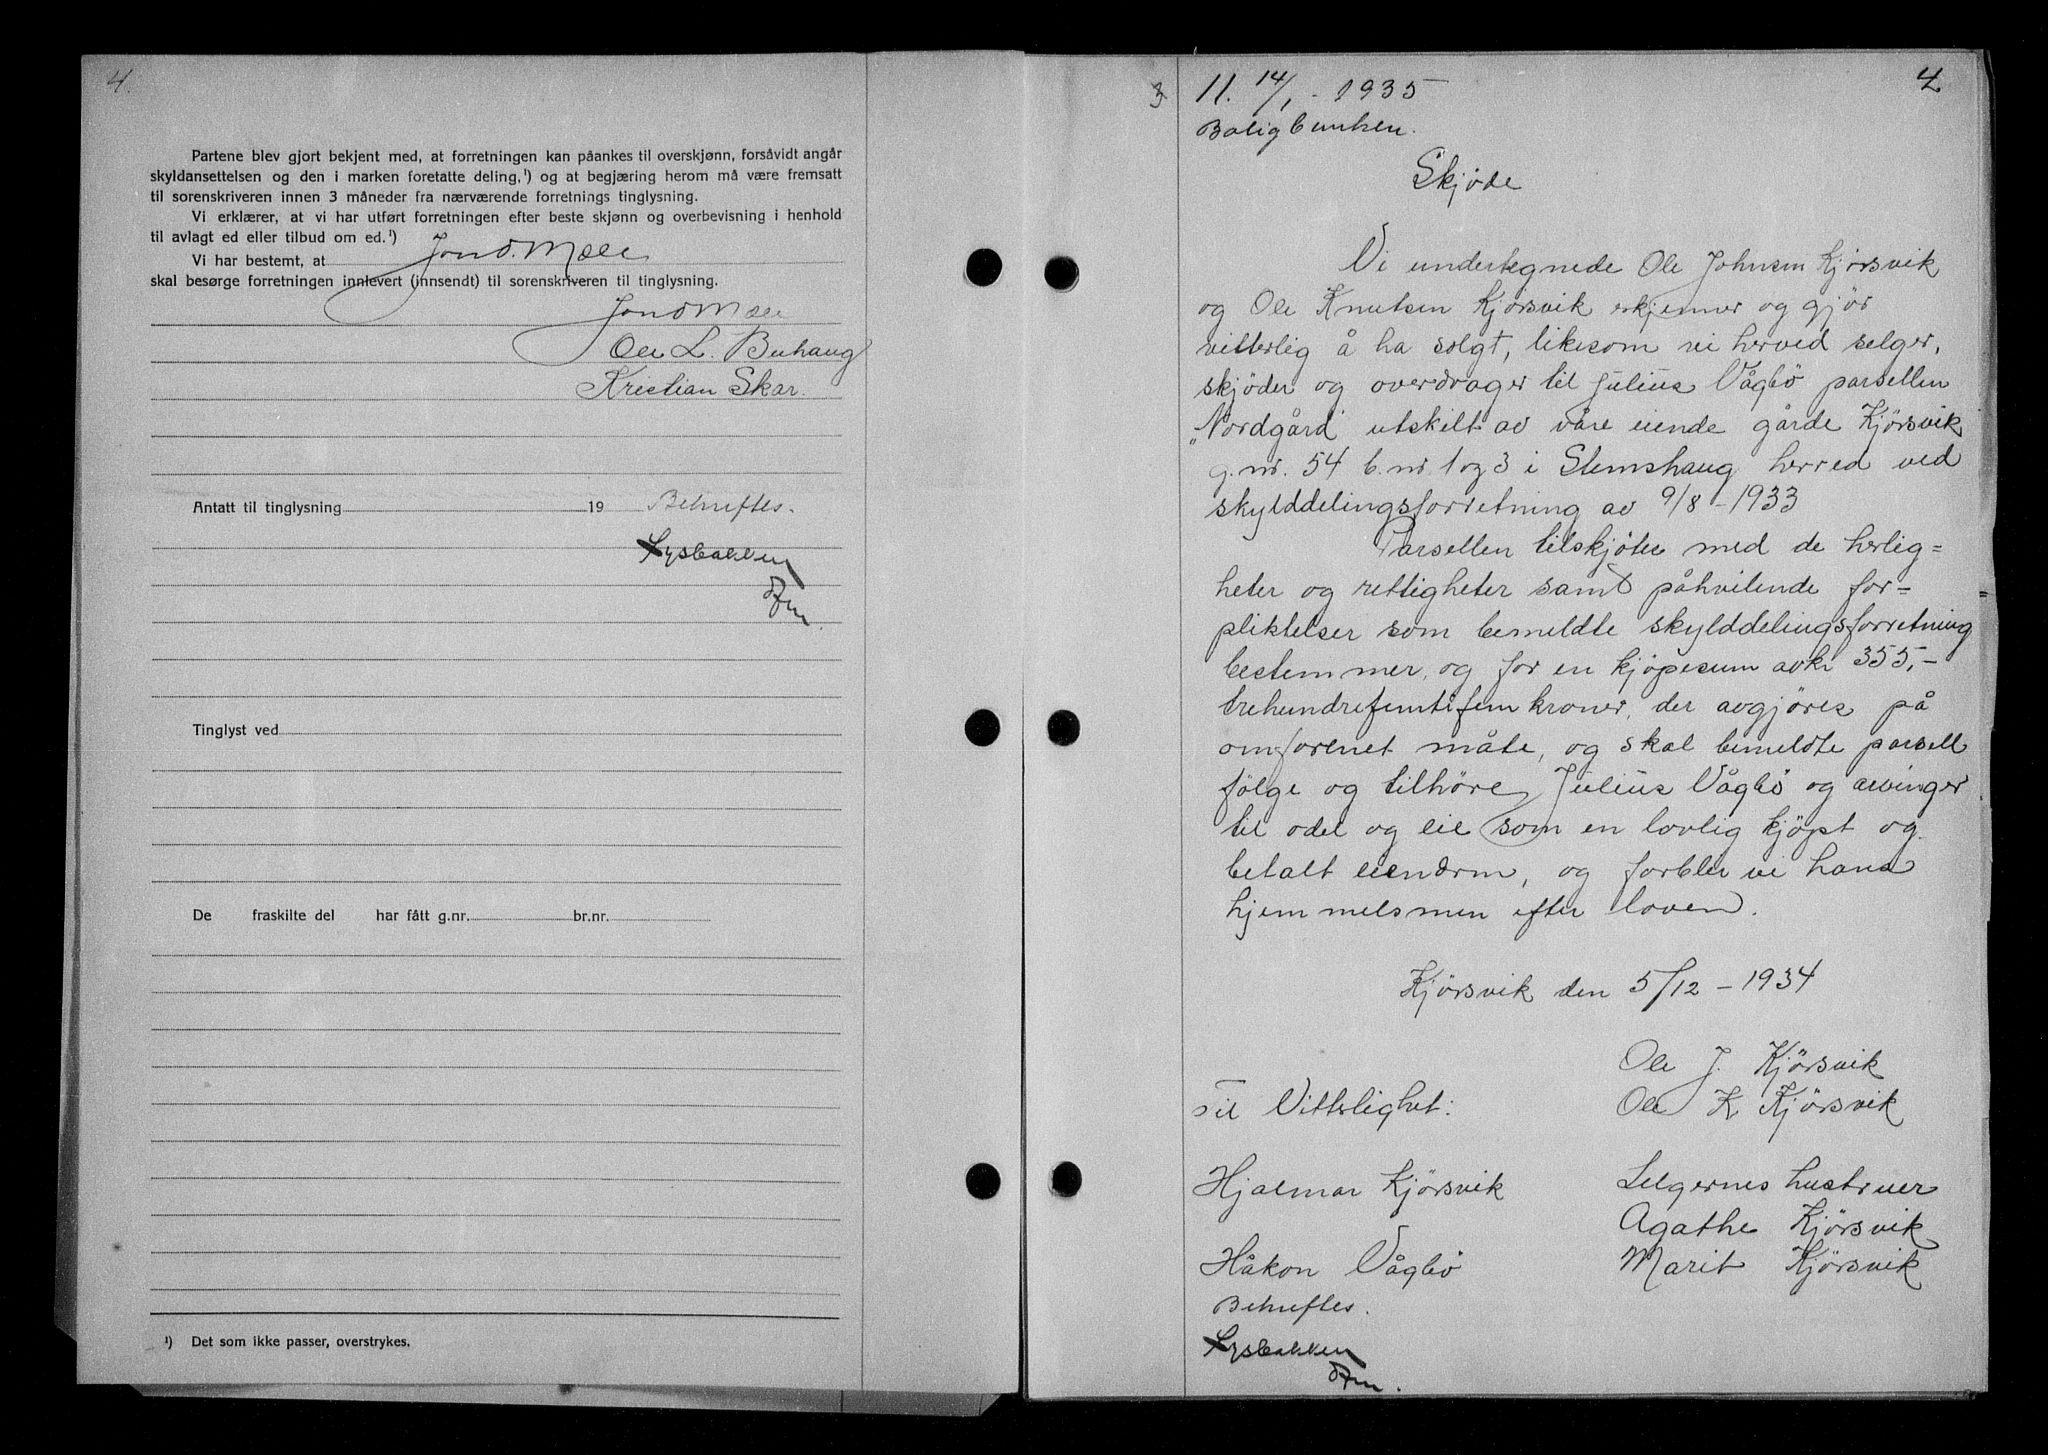 4.
Partene blev gjort bekjent med, at forretningen kan påankes til overskjønn, forsåvidt angår
skyldansettelsen og den i marken foretatte deling,¹) og at begjæring herom må være fremsatt
til sorenskriveren innen 3 måneder fra nærværende forretnings tinglysning.
Vi erklærer, at vi har utført forretningen efter beste skjønn og overbevisning i henhold
til avlagt ed eller tilbud om ed.¹)
Vi har bestemt, at Jon O. Mæle
skal besørge forretningen innlevert (innsendt) til sorenskriveren til tinglysning.
Jon O Mæle
Ole L. Buhaug
Kristian Skar.
Antatt til tinglysning 19 Bekreftes.
Lysbakken
Tinglyst ved
De fraskilte del har fått g.nr. br.nr.
¹) Det som ikke passer, overstrykes.
3
11. 14/1 - 1935
4
Skjøde
Vi undertegnede Ole Johnsen Kjørsvik
og Ole Knutsen Kjørsvik erkjenner og gjør
vitterlig å ha solgt, likesom vi herved selger,
skjøder og overdrager til Julius Vågbö parsellen
"Nordgård" utskilt av våre eiende gårde Kjörsvik
g.nr. 54 b.nr 1 og 3 i Stemshaug herred ved
skylddelingsforretning av 9/8 - 1933
Parsellen tilskjøtes med de herlig=
heter og rettigheter samt påhvilende for=
pliktelser som bemeldte skylddelingsforretning
bestemmer, og for en kjøpesum av kr 355,-
trehundrefemtifem kroner, der avgjøres på
omforenet måte, og skal bemeldte parsell
følge og tilhøre Julius Vågbö og arvinger
til odel og eie som en lovlig kjöpt og
betalt eiendom, og forblir vi hans
hjemmelsmen efter loven.
Kjörsvik den 5/12 - 1934
Ole J. Kjörsvik
Til Vitterlighet: Ole K Kjörsvik
Hjalmar Kjörsvik Selgernes hustruer
Agathe Kjörsvik
Håkon Vågbö Marit Kjörsvik
Bekreftes.
Lysbakken